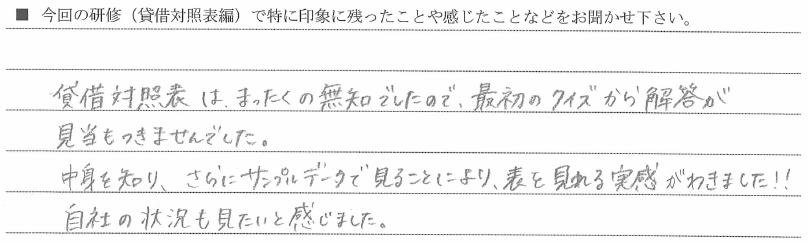 ■ 今回の研修（貸借対照表編）で特に印象に残ったことや感じたことなどをお聞かせ下さい。
貸借対照表は、まったくの無知でしたので、最初のクイズから解答が
見当もつきませんでした。
中身を知り、さらにサンプルデータで見ることにより、表を見れる実感がわきました!!
自社の状況も見たいと感じました。